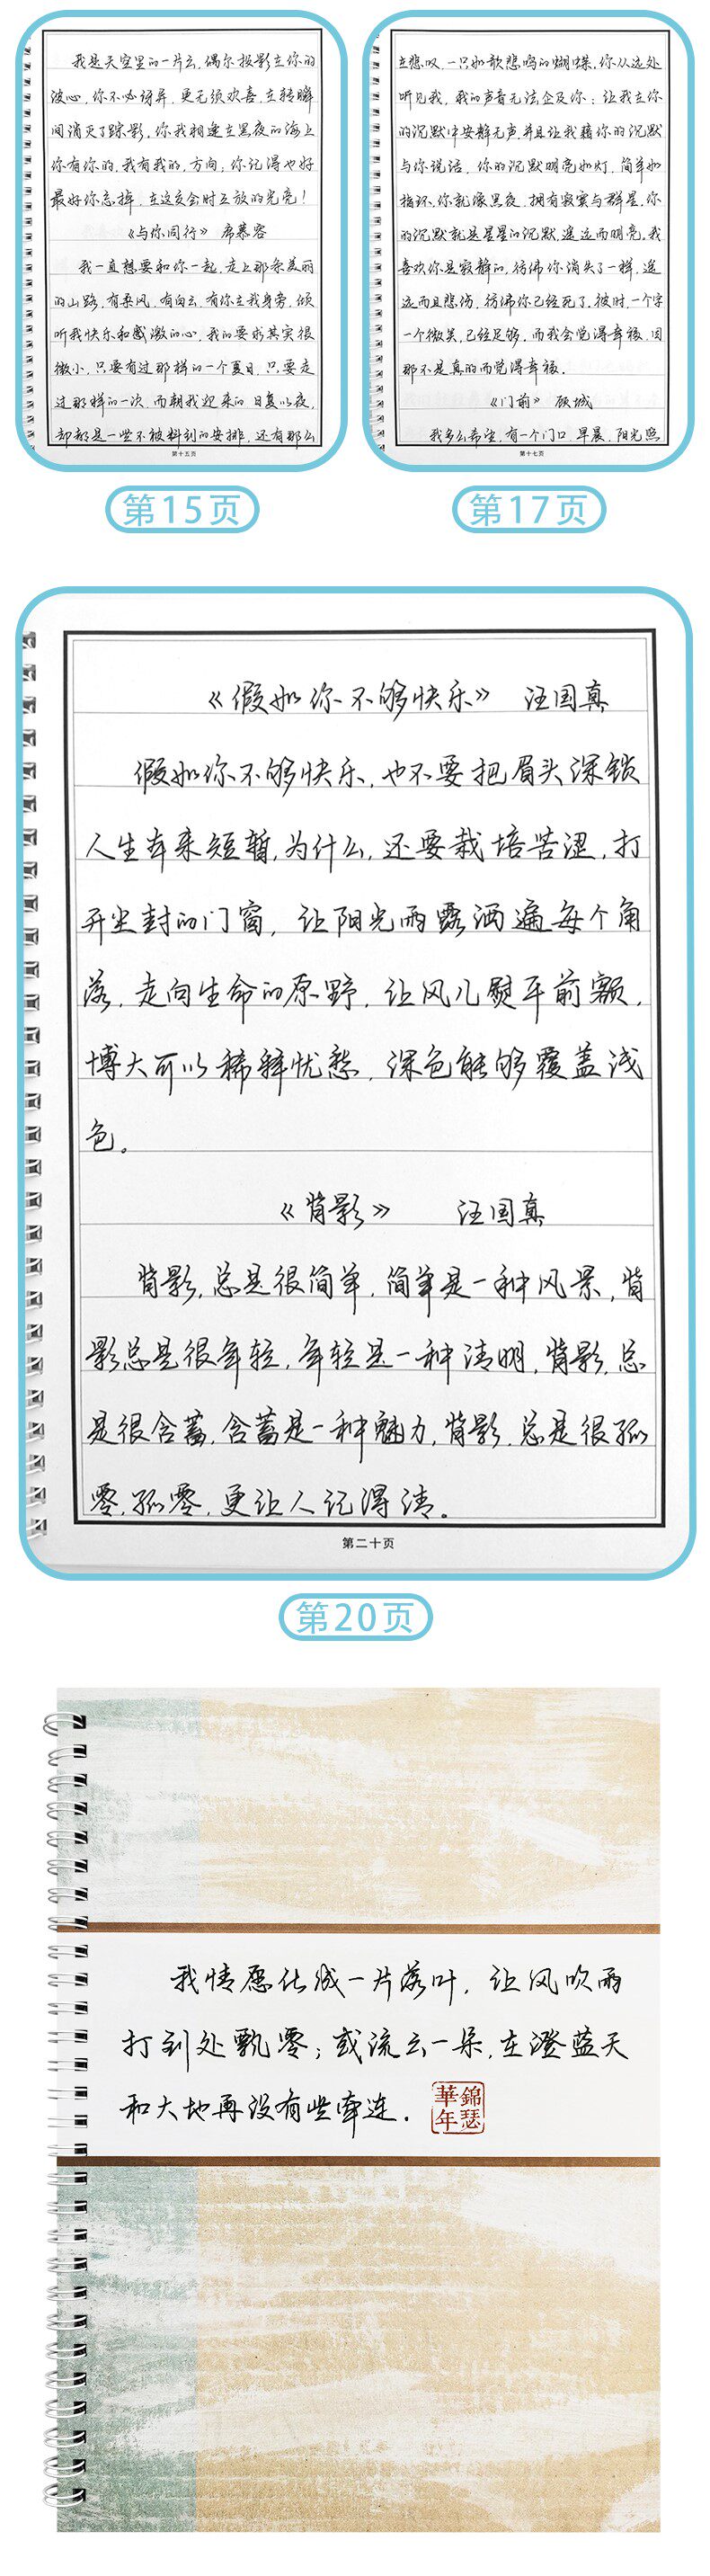 我是天空里的一片云,偶尔投影在你的
波心,你不必讶异,更无须欢喜,在转瞬
间消灭了踪影,你我相逢在黑夜的海上
你有你的,我有我的,方向,你记得也好
最好你忘掉,在这交会时互放的光亮!
《与你同行》 席慕容
我一直想要和你一起,走上那条美丽
的山路,有柔风,有白云,有你在我身旁,倾
听我快乐和感激的心,我的要求其实很
微小,只要有过那样的一个夏日,只要走
过那样的一次,而朝我迎来的,日复以夜,
却都是一些不被料到的安排,还有那么
第十五页
第15页
在悲叹,一只如歌悲鸣的蝴蝶,你从远处
听见我,我的声音无法企及你:让我在你
的沉默中安静无声,并且让我藉你的沉默
与你说话,你的沉默明亮如灯,简单如
指环,你就像黑夜,拥有寂寞与群星,你
的沉默就是星星的沉默,遥远而明亮,我
喜欢你是寂静的,彷佛你消失了一样,遥
远而且悲伤,彷佛你已经死了,彼时,一个字
一个微笑,已经足够,而我会觉得幸福,因
那不是真的而觉得幸福.
《门前》 顾城
我多么希望,有一个门口,早晨,阳光照
第十七页
第17页
《假如你不够快乐》 汪国真
假如你不够快乐,也不要把眉头深锁
人生本来短暂,为什么,还要栽培苦涩,打
开尘封的门窗,让阳光雨露洒遍每个角
落,走向生命的原野,让风儿熨平前额,
博大可以稀释忧愁,深色能够覆盖浅
色。
《背影》 汪国真
背影,总是很简单,简单是一种风景,背
影总是很年轻,年轻是一种清明,背影,总
是很含蓄,含蓄是一种魅力,背影,总是很孤
零,孤零,更让人记得清。
第二十页
第20页
我情愿化成一片落叶,让风吹雨
打到处飘零;或流云一朵,在澄蓝天
和大地再没有些牵连.
錦瑟
華年